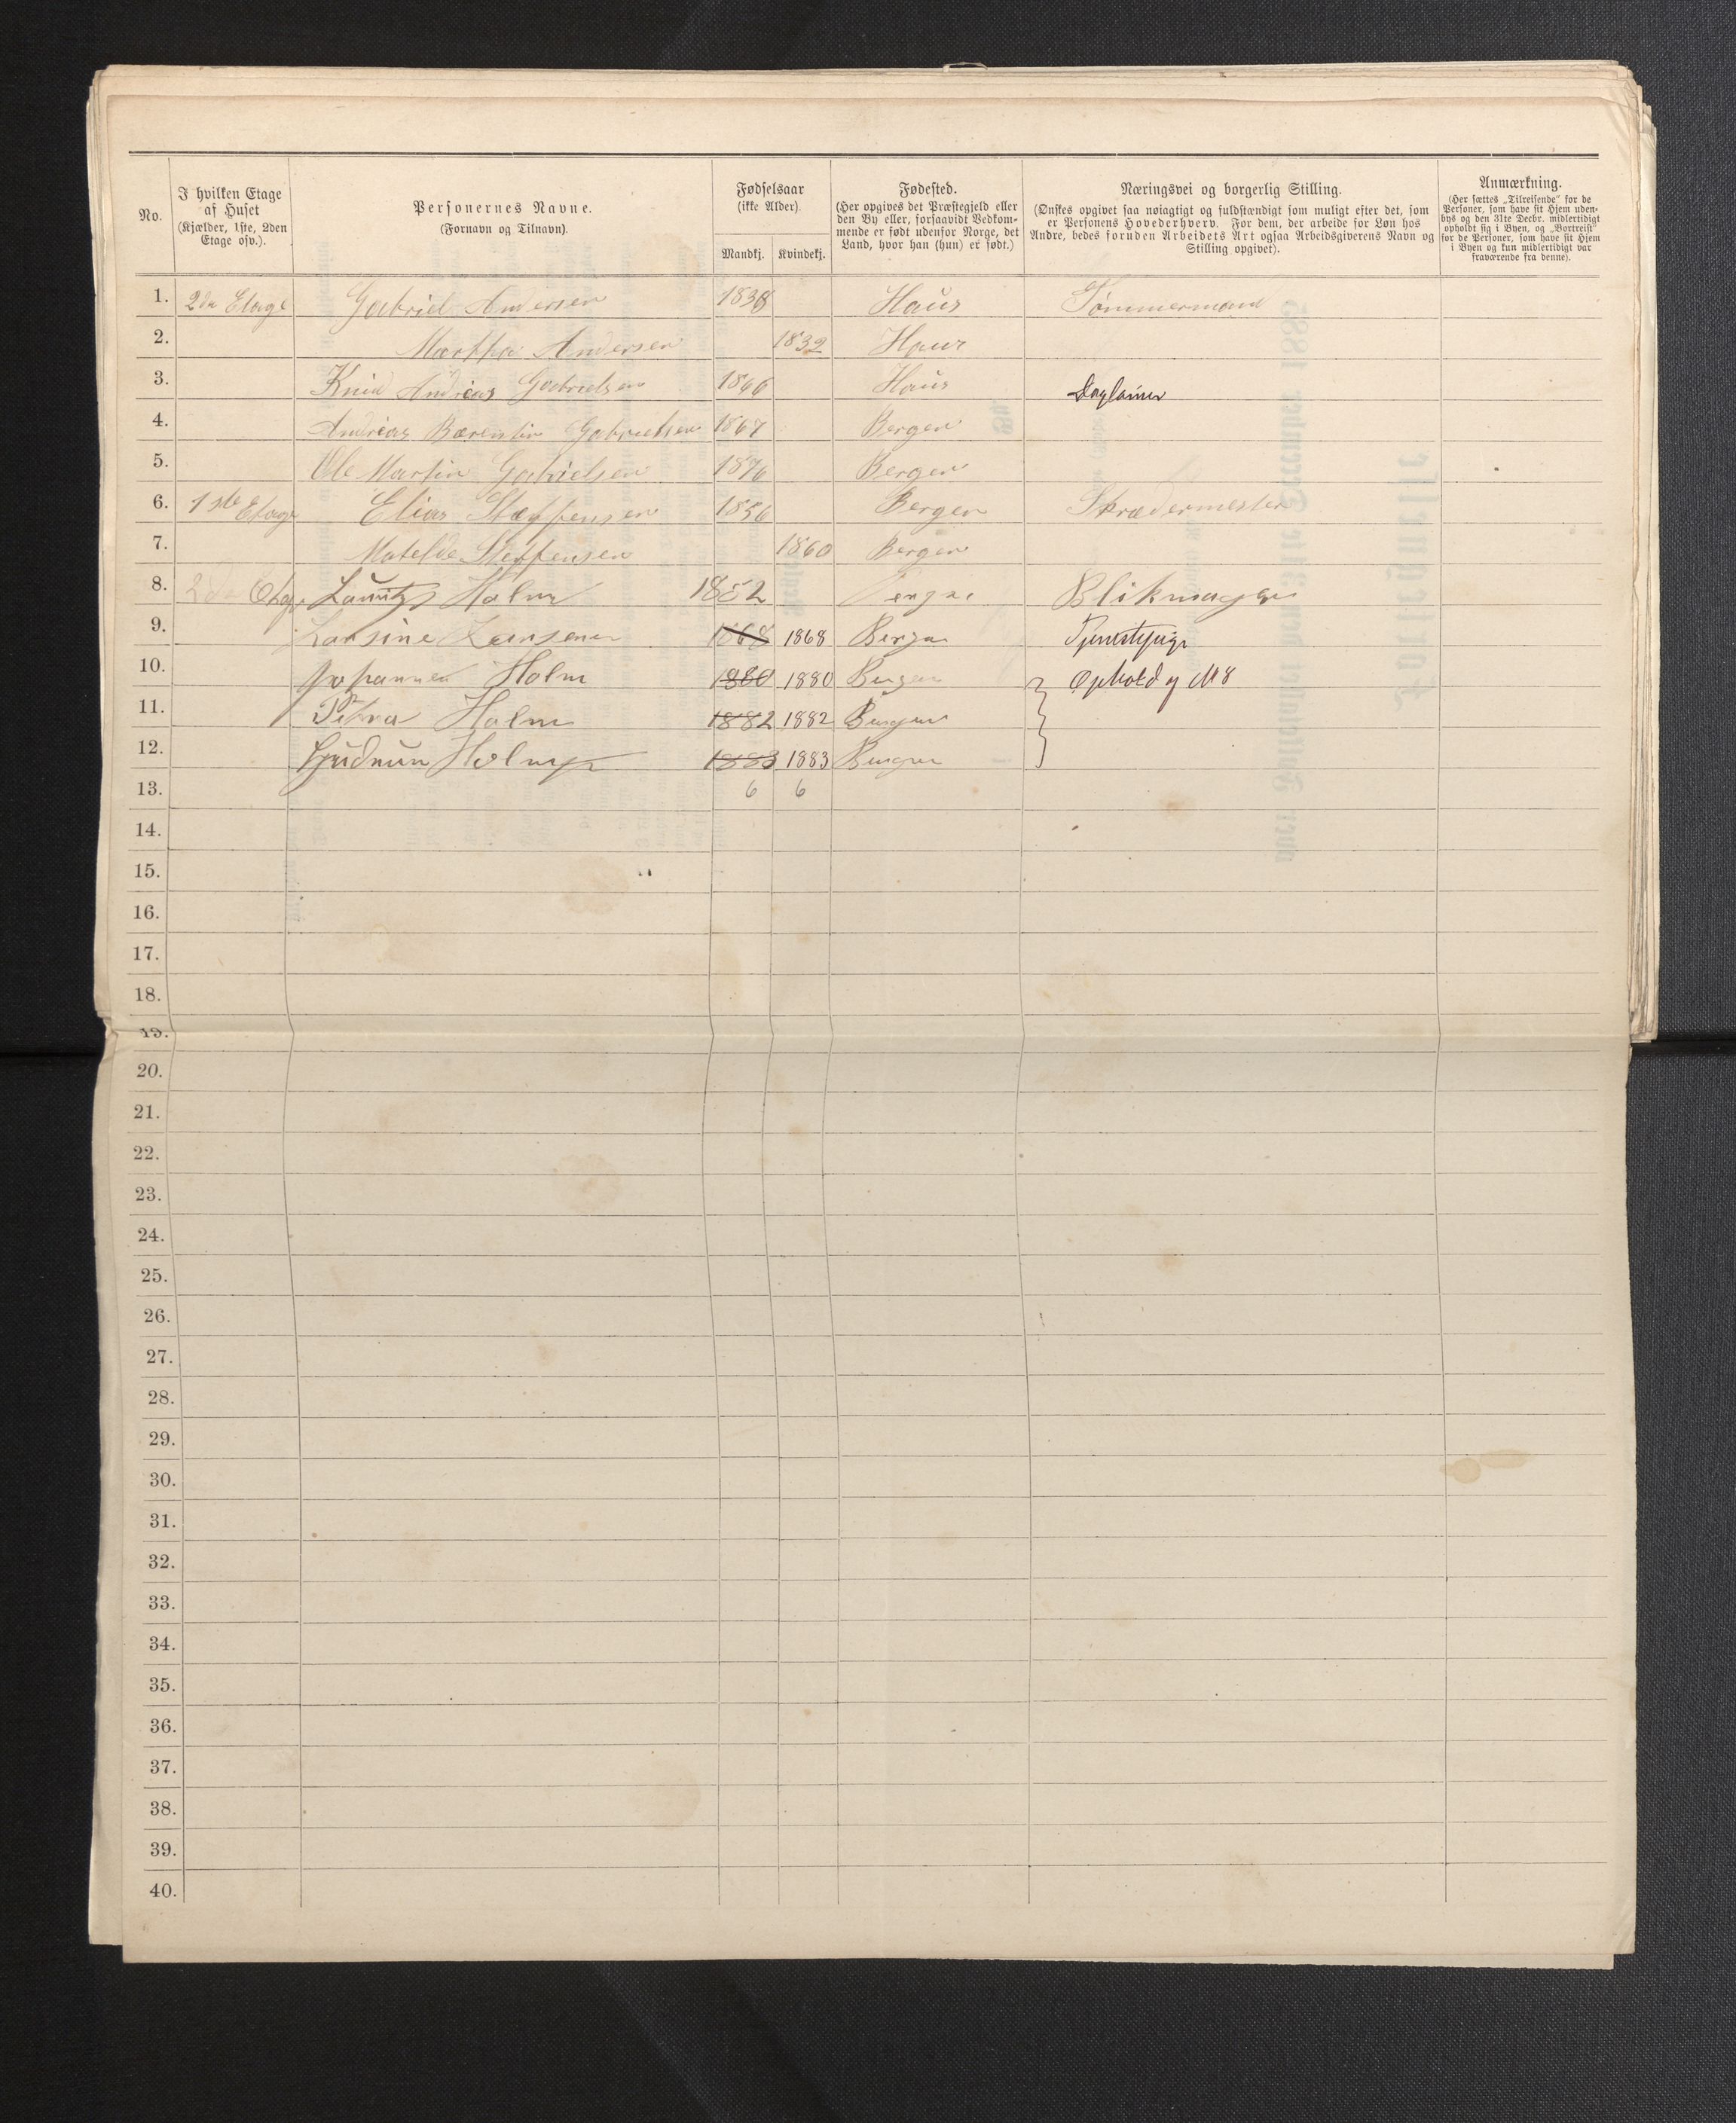 No.
I hvilken Etage af Huset (Kjælder, 1ste, 2den Etage osv.).
Personernes Navne. (Fornavn og Tilnavn).
Fødselsaar (ikke Alder).
Mandkj. Kvindekj.
Fødested. (Her opgives det Præstegjeld eller den By eller, forsaavidt Vedkommende er født udenfor Norge, det Land, hvor han (hun) er født.)
Næringsvei og borgerlig Stilling. (Ønskes opgivet saa nøiagtigt og fuldstændigt som muligt efter det, som er Personens Hovederhverv. For dem, der arbeide for Løn hos Andre, bedes foruden Arbeidets Art ogsaa Arbeidsgiverens Navn og Stilling opgivet).
Anmærkning. (Her sættes „Tilreisende“ for de Personer, som have sit Hjem udenbys og den 31te Decbr. midlertidigt opholdt sig i Byen, og „Bortreist“ for de Personer, som have sit Hjem i Byen og kun midlertidigt var fraværende fra denne).
1. 2den Etage Gabriel Andersen 1838 Haus Tømmermand
2. Martha Andersen 1832 Haus
3. Knud Andreas Gabrielsen 1866 Haus Dagleier
4. Andreas Bærentin Gabrielsen 1867 Bergen
5. Ole Martin Gabrielsen 1876 Bergen
6. 1ste Etage Elias Steffensen 1856 Bergen Skrædermester
7. Matelde Steffensen 1860 Bergen
8. 2den Etage Lauritz Holm 1852 Bergen Blikmager
9. Larsine 1868 1868 Bergen Tjenestepige
10. Johanne Holm 1880 1880 Bergen Ophold af No 8
11. Petra Holm 1882 1882 Bergen
12. Gudrun Holm 1883 1883 Bergen
13. 6 6
14.
15.
16.
17.
18.
19.
20.
21.
22.
23.
24.
25.
26.
27.
28.
29.
30.
31.
32.
33.
34.
35.
36.
37.
38.
39.
40.